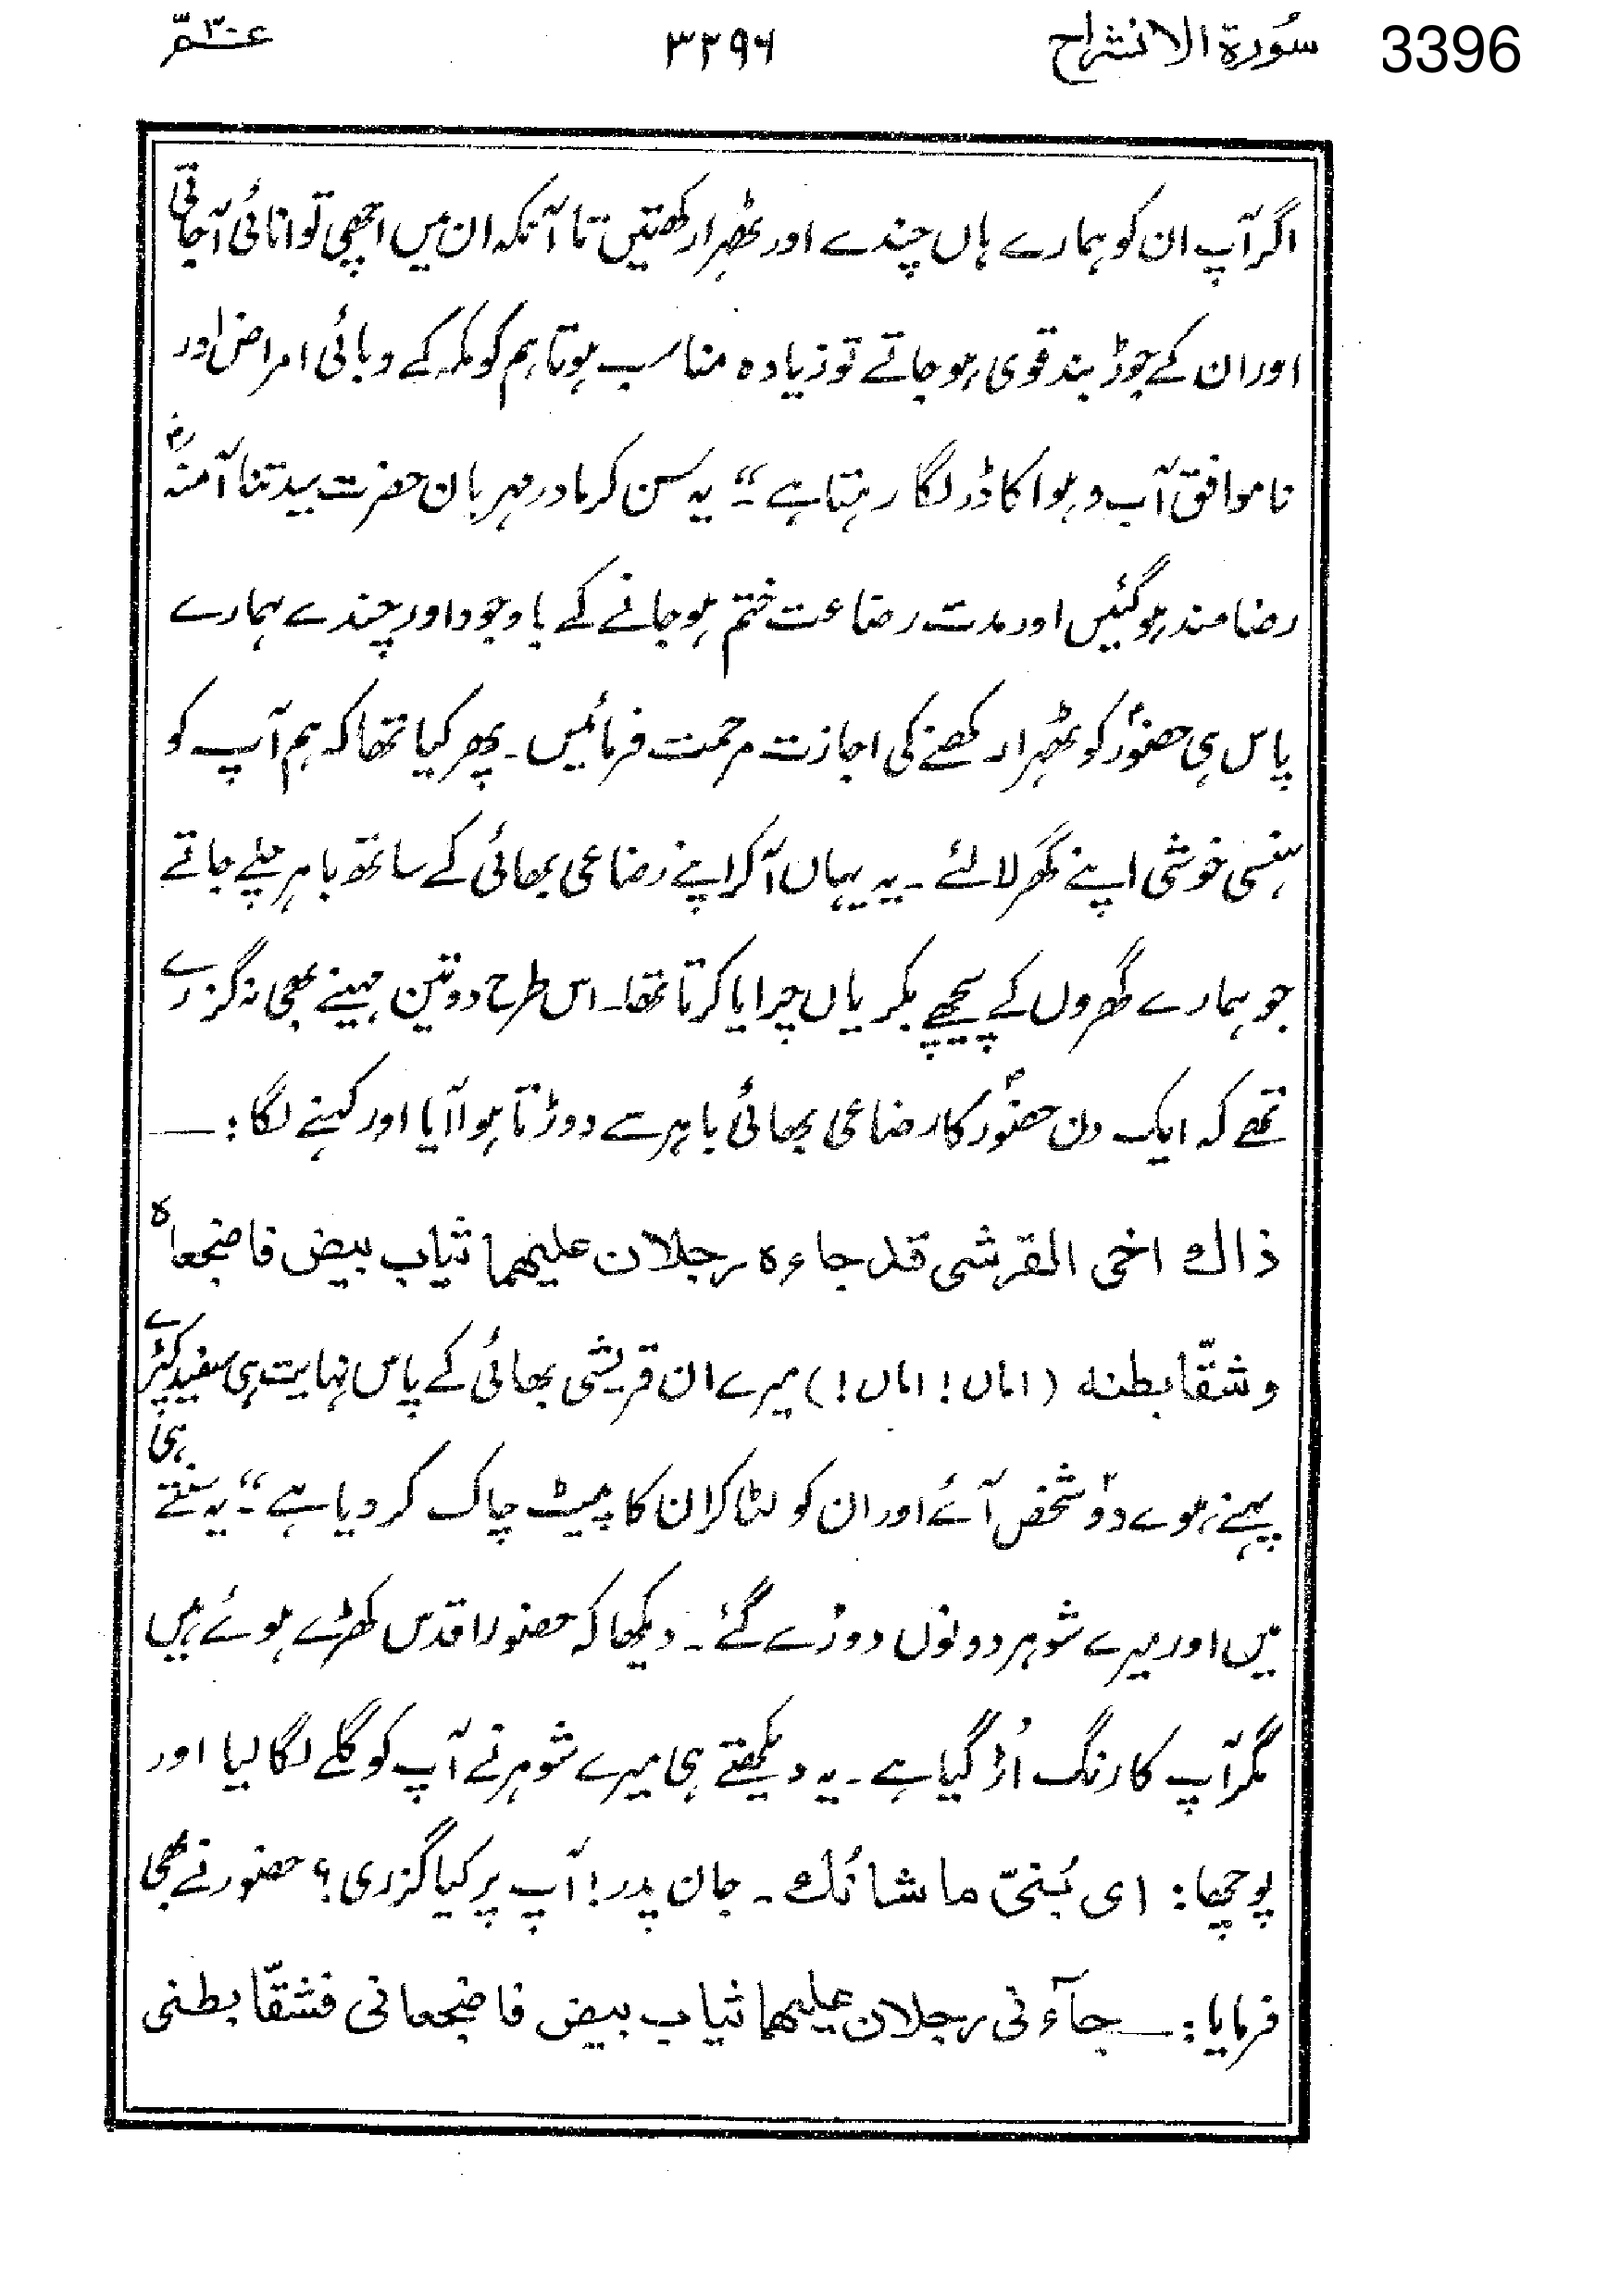 3396 سُورة الانشراح ۳۳۹۶ عـمّ ۳۰
اگر آپ ان کو ہمارے ہاں چندے اور ٹھہرا رکھتیں تا آنکہ ان میں اچھی توانائی آجاتی
اور ان کے جوڑ بند قوی ہو جاتے تو زیادہ مناسب ہوتا ہم کو مکہ کے وبائی امراض اور
ناموافق آب و ہوا کا ڈر لگا رہتا ہے۔“ یہ سن کر مادر مہربان حضرت سیدتنا آمنہؓ
رضا مند ہو گئیں اور مدت رضاعت ختم ہو جانے کے باوجود اور چندے ہمارے
پاس ہی حضورؐ کو ٹھہرا رکھنے کی اجازت مرحمت فرمائیں۔ پھر کیا تھا کہ ہم آپ کو
ہنسی خوشی اپنے گھر لائے۔ یہ یہاں آکر اپنے رضاعی بھائی کے ساتھ باہر چلے جاتے
جو ہمارے گھروں کے پیچھے بکریاں چرایا کرتا تھا۔ اس طرح دو تین مہینے بھی نہ گزرے
تھے کہ ایک دن حضورؐ کا رضاعی بھائی باہر سے دوڑتا ہوا آیا اور کہنے لگا:ـــ
ذاك اخی القرشی قد جاءہ رجلان علیهما ثیاب بیض فاضجعاہ
وشقّا بطنه (اماں! اماں!) میرے ان قریشی بھائی کے پاس نہایت ہی سفید کپڑے
پہنے ہوے دوؔ شخص آئے اور ان کو لٹا کر ان کا پیٹ چاک کر دیا ہے۔“ یہ سنتے ہی
میں اور میرے شوہر دونوں دوڑے گئے۔ دیکھا کہ حضور اقدس کھڑے ہوئے ہیں
مگر آپ کا رنگ اُڑ گیا ہے۔ یہ دیکھتے ہی میرے شوہر نے آپ کو گلے لگا لیا اور
پوچھا: ای بُنیّ ما شانُك۔ جان پدر! آپ پر کیا گزری؟ حضور نے بھی
فرمایا:ـــ جآءنی رجلان علیهما ثیاب بیض فاضجعانی فشقّا بطنی